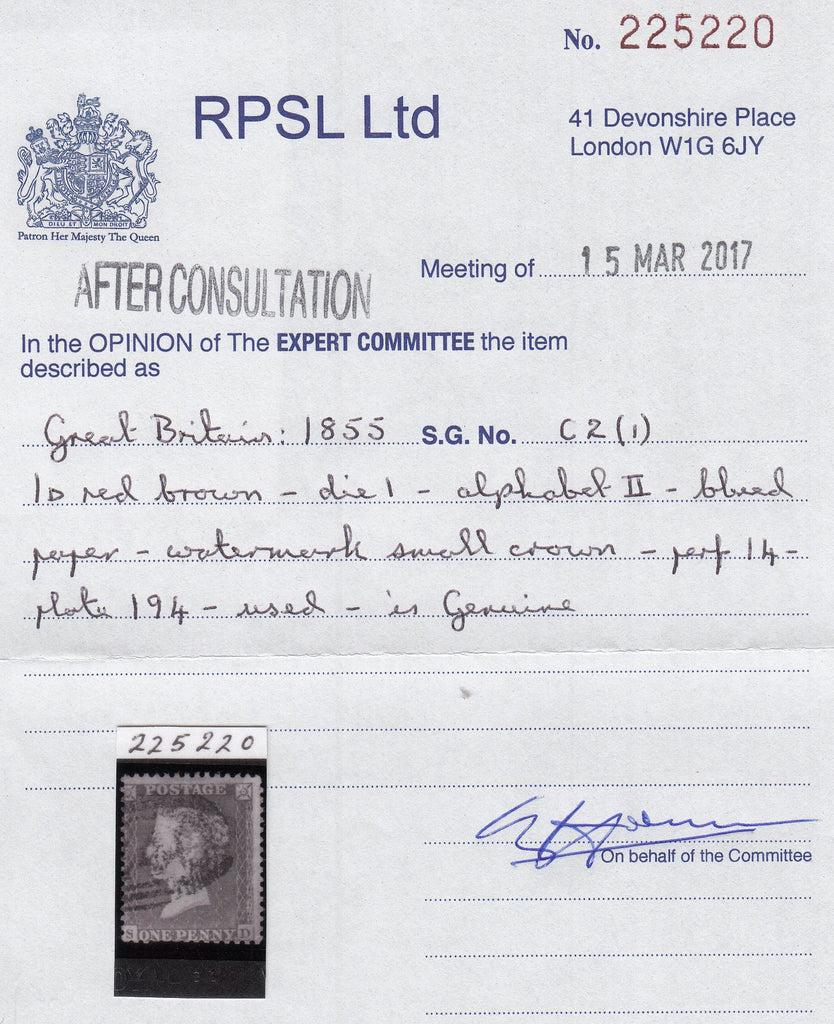 No. 225220
RPSL Ltd
41 Devonshire Place
London W1G 6JY
DIEU ET MON DROIT
Patron Her Majesty The Queen
AFTER CONSULTATION
Meeting of 15 MAR 2017
In the OPINION of The EXPERT COMMITTEE the item
described as
Great Britain: 1855 S.G. No. C2(1)
1D red brown - die 1 - alphabet II - blued
paper - watermark small crown - perf 14 -
plate 194 - used - is Genuine
225220
POSTAGE
S ONE PENNY D
On behalf of the Committee